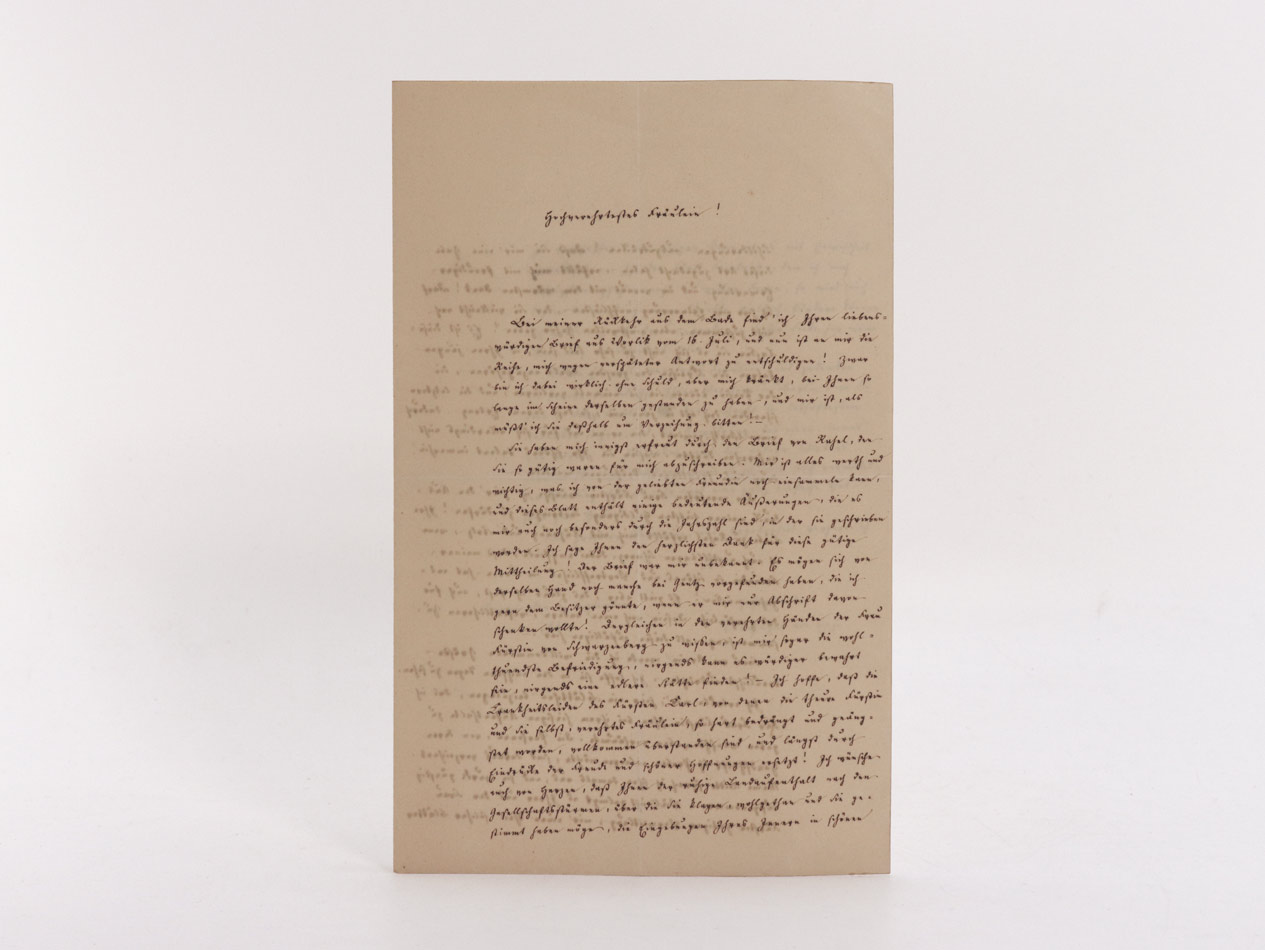 Hochverehrtestes Fräulein!
Bei meiner Rückkehr aus dem Bade find' ich Ihren liebens-
würdigen Brief aus Worlik vom 16. Juli, und nun ist es an mir die
Reihe, mich wegen verspäteter Antwort zu entschuldigen! Zwar
bin ich dabei wirklich ohne Schuld, aber mich kränkt, bei Ihnen so
lange im Scheine derselben gestanden zu haben, und mir ist, als
müßt' ich Sie deßhalb um Verzeihung bitten! –
Sie haben mich innigst erfreut durch den Brief von Rahel, den
Sie so gütig waren für mich abzuschreiben. Mir ist alles werth und
wichtig, was ich von der geliebten Freundin noch einsammeln kann,
und dieses Blatt enthält einige bedeutende Äußerungen, die es
mir auch noch besonders durch die Jahrszahl sind, in der sie geschrieben
worden. Ich sage Ihnen den herzlichsten Dank für diese gütige
Mittheilung! Der Brief war mir unbekannt. Es mögen sich von
derselben Hand noch manche bei Gentz vorgefunden haben, die ich
gern dem Besitzer gönnte, wenn er mir nur Abschrift davon
schenken wollte! Dergleichen in den verehrten Händen der Frau
Fürstin von Schwarzenberg zu wissen, ist mir sogar die wohl-
thuendste Befriedigung, nirgends kann es würdiger bewahrt
sein, nirgends eine edlere Stätte finden! – Ich hoffe, daß die
Krankheitsleiden des Fürsten Carl, von denen die theure Fürstin
und Sie selbst, verehrtes Fräulein, so hart bedrängt und geäng-
stet worden, vollkommen überstanden sind, und längst durch
Eindrücke der Freude und schöner Hoffnungen ersetzt! Ich wünsche
auch von Herzen, daß Ihnen der ruhige Landaufenthalt nach den
Gesellschaftsstürmen, über die Sie klagen, wohlgethan und Sie ge-
stimmt haben möge, die Eingebungen Ihres Innern in schönen